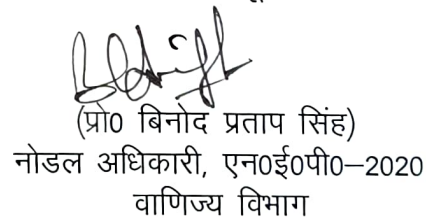 (प्रो0 बिनोद प्रताप सिंह)
नोडल अधिकारी, एन0ई0पी0–2020
वाणिज्य विभाग